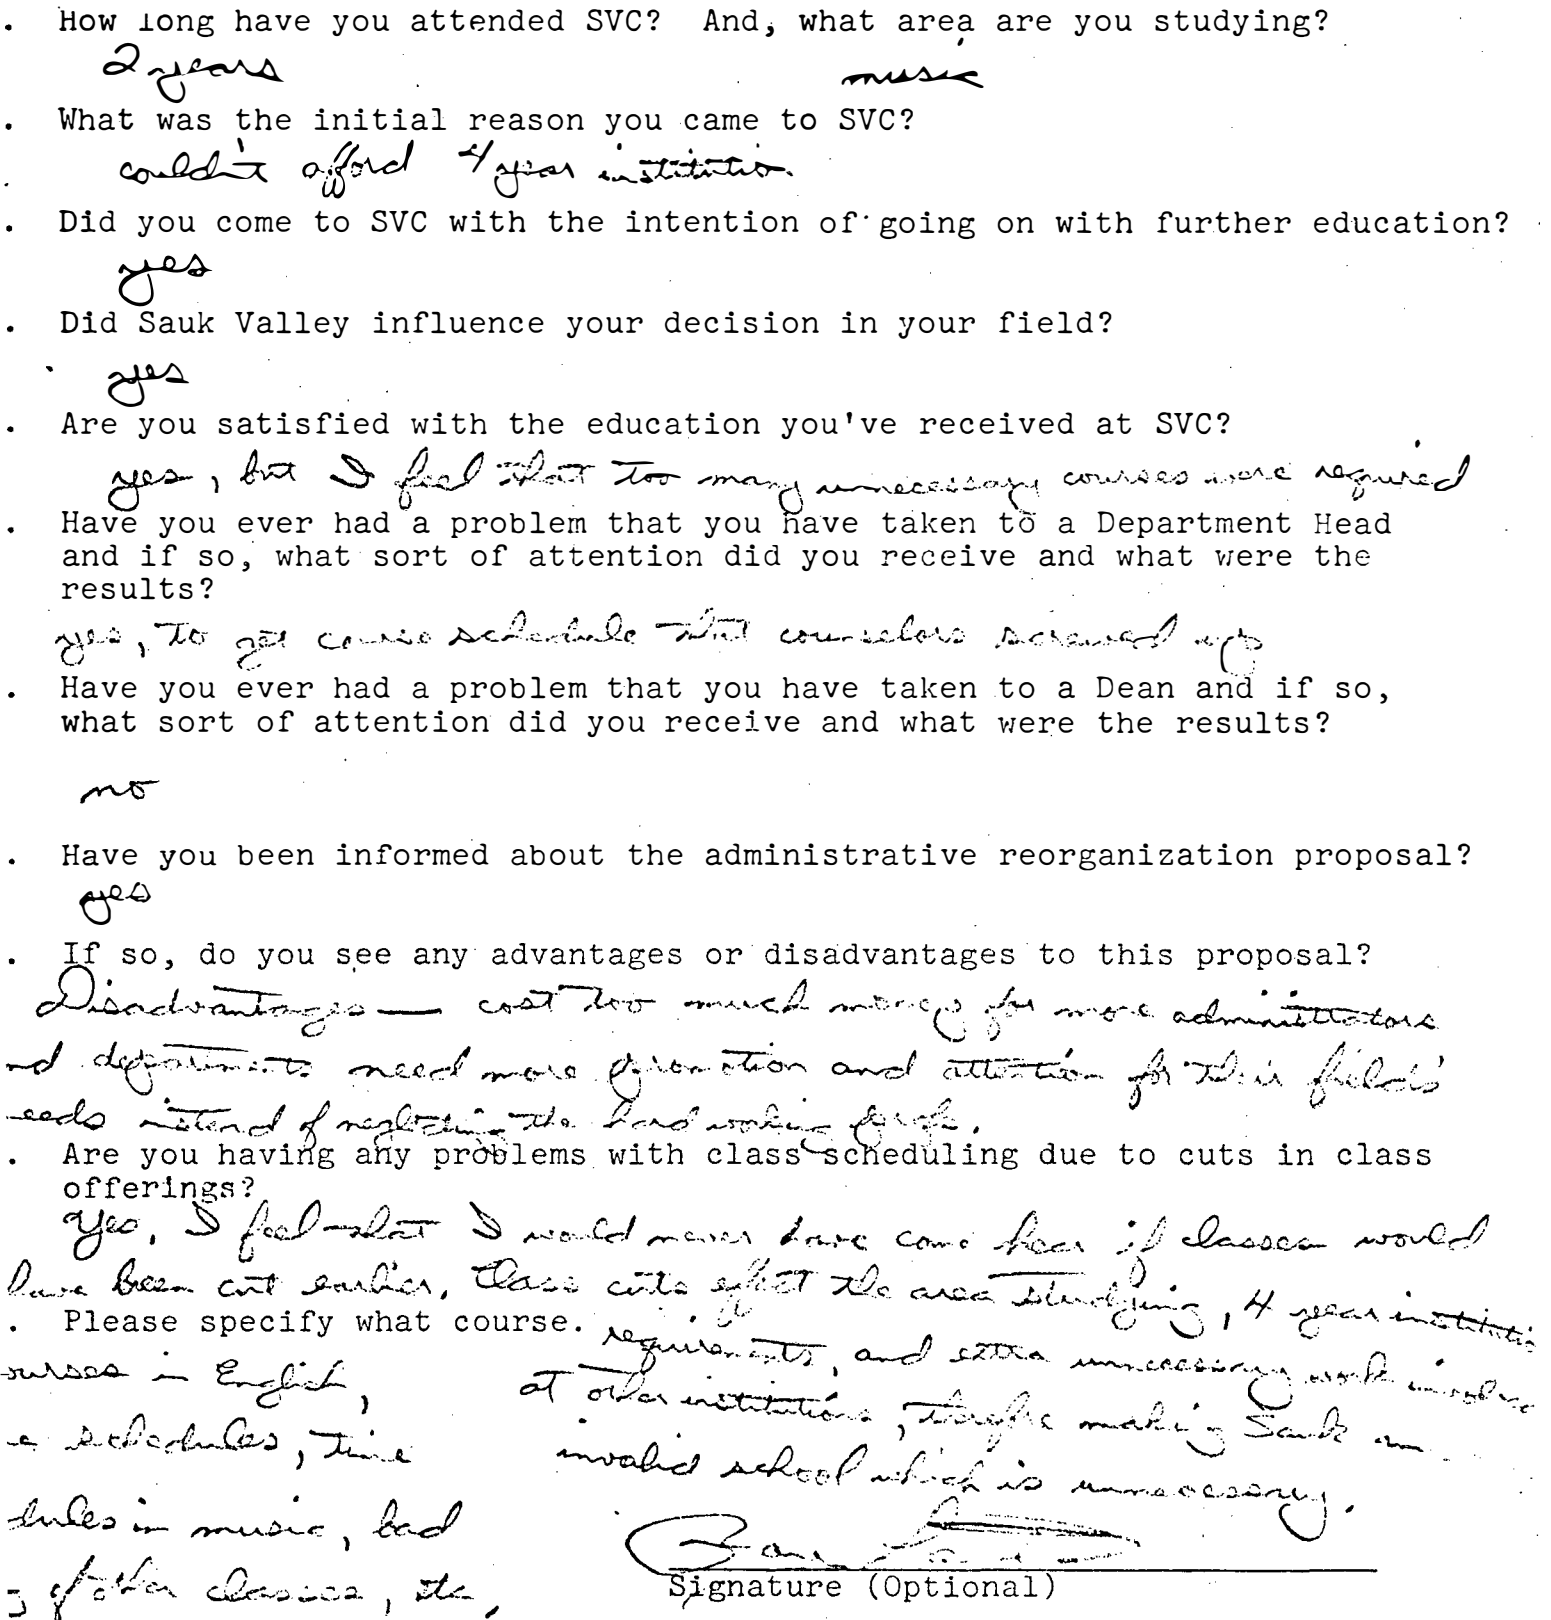 . How long have you attended SVC? And, what area are you studying?
2 years music
. What was the initial reason you came to SVC?
couldn't afford 4 year institution.
. Did you come to SVC with the intention of going on with further education?
yes
. Did Sauk Valley influence your decision in your field?
yes
. Are you satisfied with the education you've received at SVC?
yes, but I feel that too many unnecessary courses were required
. Have you ever had a problem that you have taken to a Department Head
and if so, what sort of attention did you receive and what were the
results?
yes, to get course schedule that counselors screwed up
. Have you ever had a problem that you have taken to a Dean and if so,
what sort of attention did you receive and what were the results?
no
. Have you been informed about the administrative reorganization proposal?
yes
. If so, do you see any advantages or disadvantages to this proposal?
Disadvantages — cost too much money for more administrators
nd departments need more promotion and attention for their fields'
eeds instead of neglecting the hard working profs.
. Are you having any problems with class scheduling due to cuts in class
offerings?
Yes, I feel that I would never have come hear if classes would
have been cut earlier. Class cuts effect the area studying, 4 year institutio
. Please specify what course.
requirements, and extra unnecessary work involve
ourses in English, at other institutions, therefore making Sauk an
e schedules, time invalid school which is unnecessary.
dules in music, bad
g of other classes, etc,
Signature (Optional)